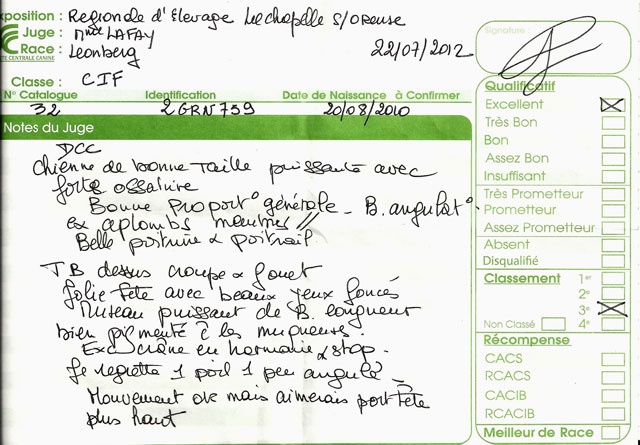 Exposition : Regionale d'Elevage Lechapelle S/Oreuse
Juge : Mme LAFAY
Race : Leonberg
22/07/2012
STE CENTRALE CANINE
Classe : CIF
N° Catalogue Identification Date de Naissance à Confirmer
32 2GRN759 20/08/2010
Notes du Juge
DCC
Chienne de bonne Taille puissante avec
forte ossature
Bonne proport° générale - B. angulat°
Ex aplombs membres //
Belle poitrine & poitrail
TB dessus croupe & fouet
Jolie tête avec beaux yeux foncés
Museau puissant de B. longueur
bien pigmenté & les muqueuses.
Exc crâne en harmonie & stop.
Je regrette 1 poil 1 peu angulé
Mouvement ok mais aimerais port Tête
plus haut
Signature :
Qualificatif
Excellent
Très Bon
Bon
Assez Bon
Insuffisant
Très Prometteur
Prometteur
Assez Prometteur
Absent
Disqualifié
Classement 1er
2e
3e
Non Classé 4e
Récompense
CACS
RCACS
CACIB
RCACIB
Meilleur de Race